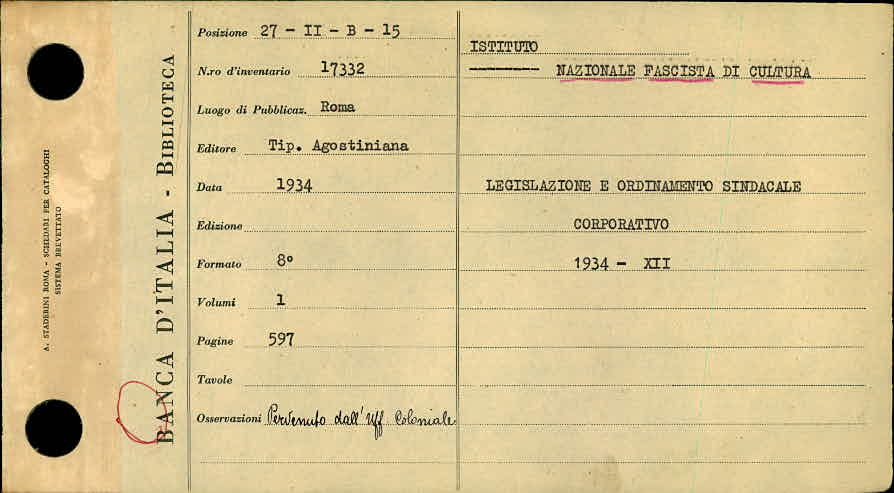 A. STADERINI ROMA - SCHEDARI PER CATALOGHI
SISTEMA BREVETTATO
BANCA D'ITALIA - BIBLIOTECA
Posizione 27 - II - B - 15
N.ro d'inventario 17332
Luogo di Pubblicaz. Roma
Editore Tip. Agostiniana
Data 1934
Edizione
Formato 8°
Volumi 1
Pagine 597
Tavole
Osservazioni Pervenuto dall'Uff Coloniale
ISTITUTO
NAZIONALE FASCISTA DI CULTURA
LEGISLAZIONE E ORDINAMENTO SINDACALE
CORPORATIVO
1934 - XII